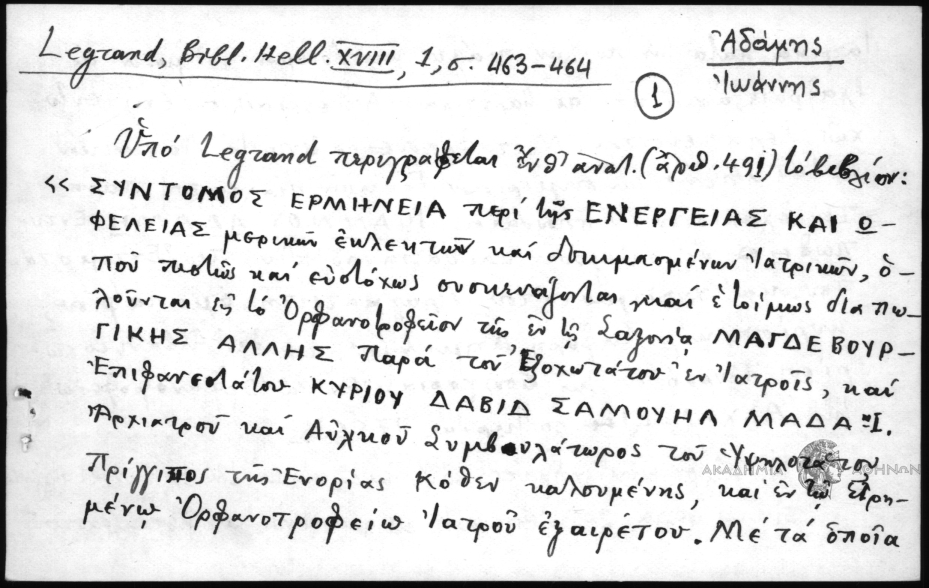 Legrand, Bibl. Hell. XVIII, 1, σ. 463-464
Ἀδάμης
Ἰωάννης
1
Ὑπό Legrand περιγράφεται ἐνθ' ἀνωτ. (ἀριθ. 491) τό βιβλίον:
<< ΣΥΝΤΟΜΟΣ ΕΡΜΗΝΕΙΑ περί τῆς ΕΝΕΡΓΕΙΑΣ ΚΑΙ Ω-
ΦΕΛΕΙΑΣ μερικῶν ἐκλεκτῶν καί δοκιμασμένων Ἰατρικῶν, ὁ-
ποῦ πιστῶς καί εὐστόχως συσκευάζονται, καί ἑτοίμως διαπω-
λοῦνται εἰς τό Ὀρφανοτροφεῖον τῆς ἐν τῇ Σαξονίᾳ ΜΑΓΔΕΒΟΥΡ-
ΓΙΚΗΣ ΑΛΛΗΣ Παρά τοῦ Ἐξοχωτάτου ἐν Ἰατροῖς, καί
Ἐπιφανεστάτου ΚΥΡΙΟΥ ΔΑΒΙΔ ΣΑΜΟΥΗΛ ΜΑΔΑΪ.
Ἀρχιατροῦ καί Αὐλικοῦ Συμβουλάτωρος τοῦ Ὑψηλοτάτου
Πρίγγιπος τῆς Ἐνορίας Κόθεν καλουμένης, καί ἐν τῷ εἰρη-
μένῳ Ὀρφανοτροφείῳ Ἰατροῦ ἐξαιρέτου. Μέ τά ὁποῖα
ΑΚΑΔΗΜΙΑ ΑΘΗΝΩΝ